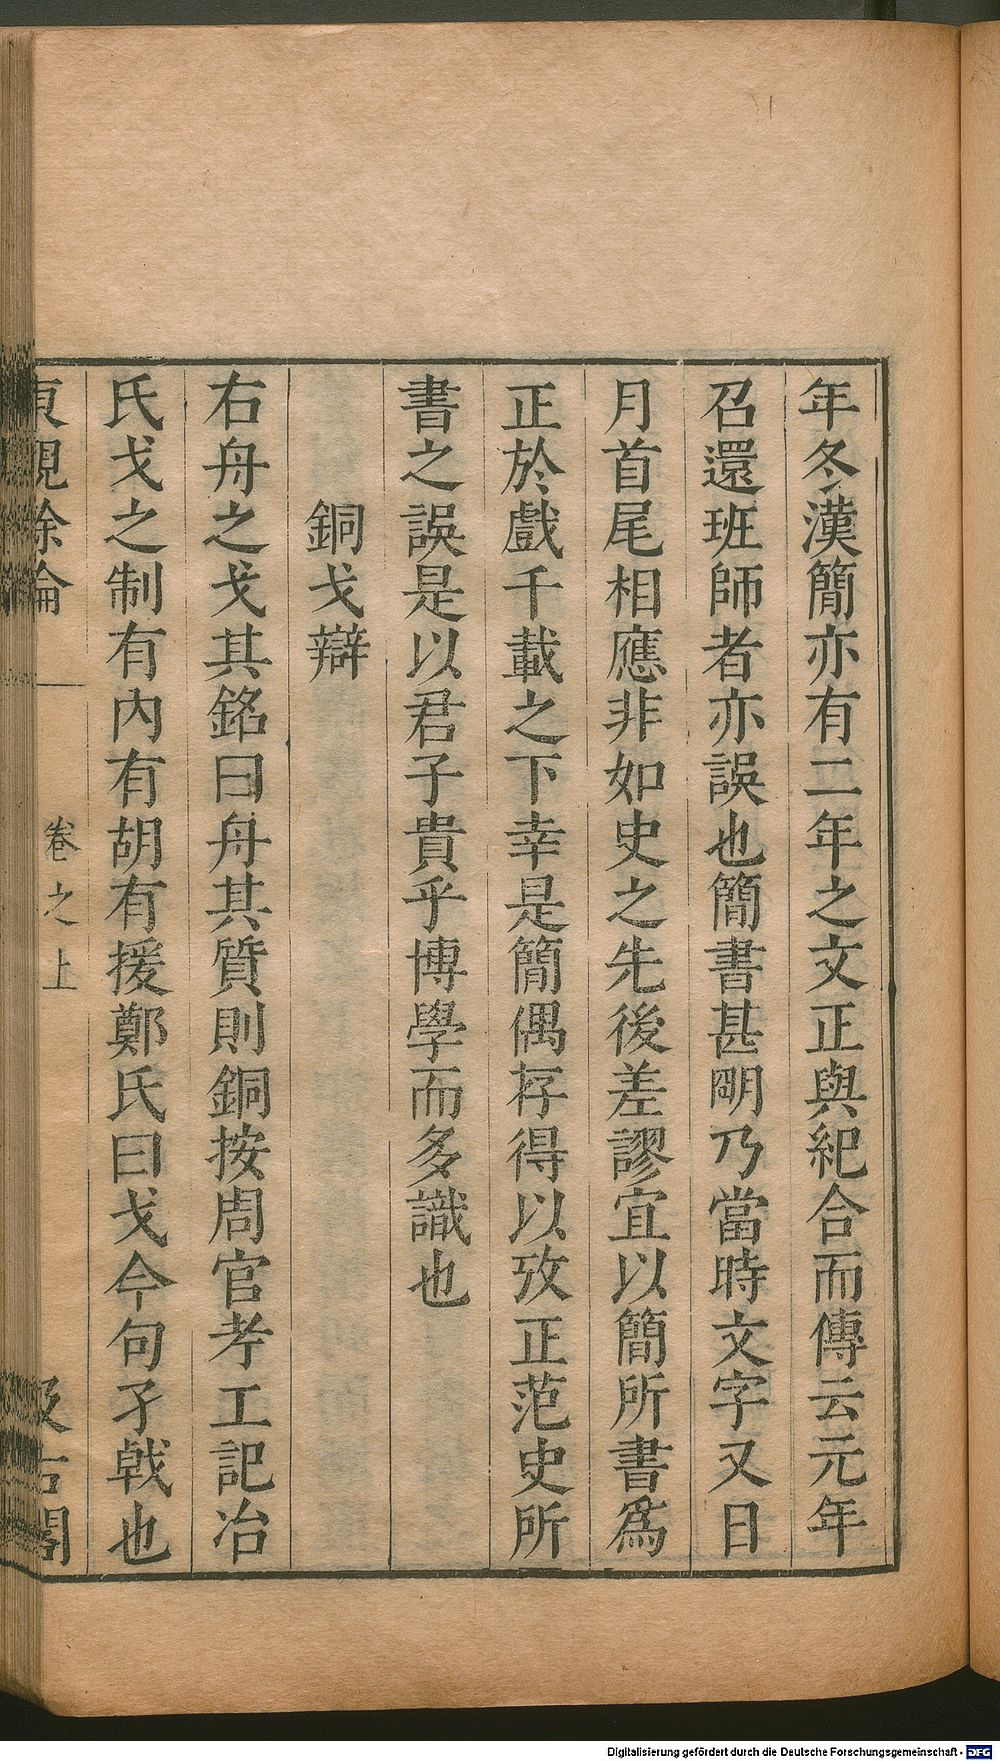 年冬漢簡亦有二年之文正與紀合而傳云元年
召還班師者亦誤也簡書甚明乃當時文字又日
月首尾相應非如史之先後差謬宜以簡所書為
正於戲千載之下幸是簡偶存得以攷正范史所
書之誤是以君子貴乎博學而多識也
銅戈辯
右舟之戈其銘曰舟其質則銅按周官考工記冶
氏戈之制有內有胡有援鄭氏曰戈今句孑戟也
東觀餘論
卷之上
汲古閣
Digitalisierung gefördert durch die Deutsche Forschungsgemeinschaft - DFG